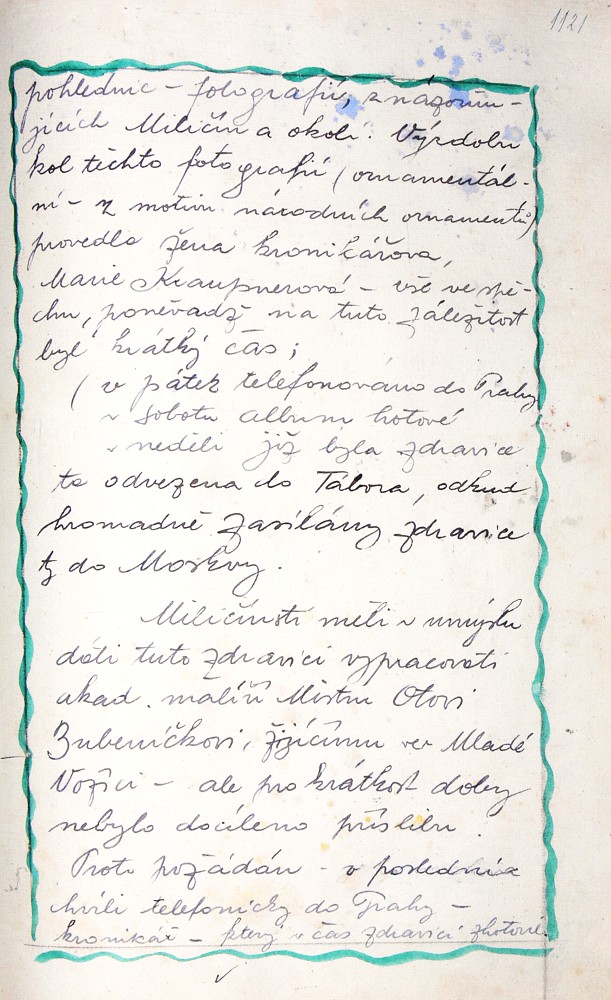 1121
pohlednic - fotografií, znázorňu-
jících Miličín a okolí. Výzdobu
kol těchto fotografií (ornamentál-
ní - z motivů národních ornamentů)
provedla žena kronikářova,
Marie Kraupnerová - vše ve spě-
chu, poněvadž na tuto záležitost
byl krátký čas;
( v pátek telefonováno do Prahy
v sobotu album hotové
v neděli již byla zdravice
ta odvezena do Tábora, odkud
hromadně zasílány zdravice
ty do Moskvy.
Miličínští měli v úmyslu
dáti tuto zdravici vypracovati
akad. malíři Mistru Otovi
Bubeníčkovi, žijícímu ve Mladé
Vožici - ale pro krátkost doby
nebylo docíleno příslibu.
Proto požádán - v poslední
chvíli telefonicky do Prahy -
kronikář - který v čas zdravici zhotovil.